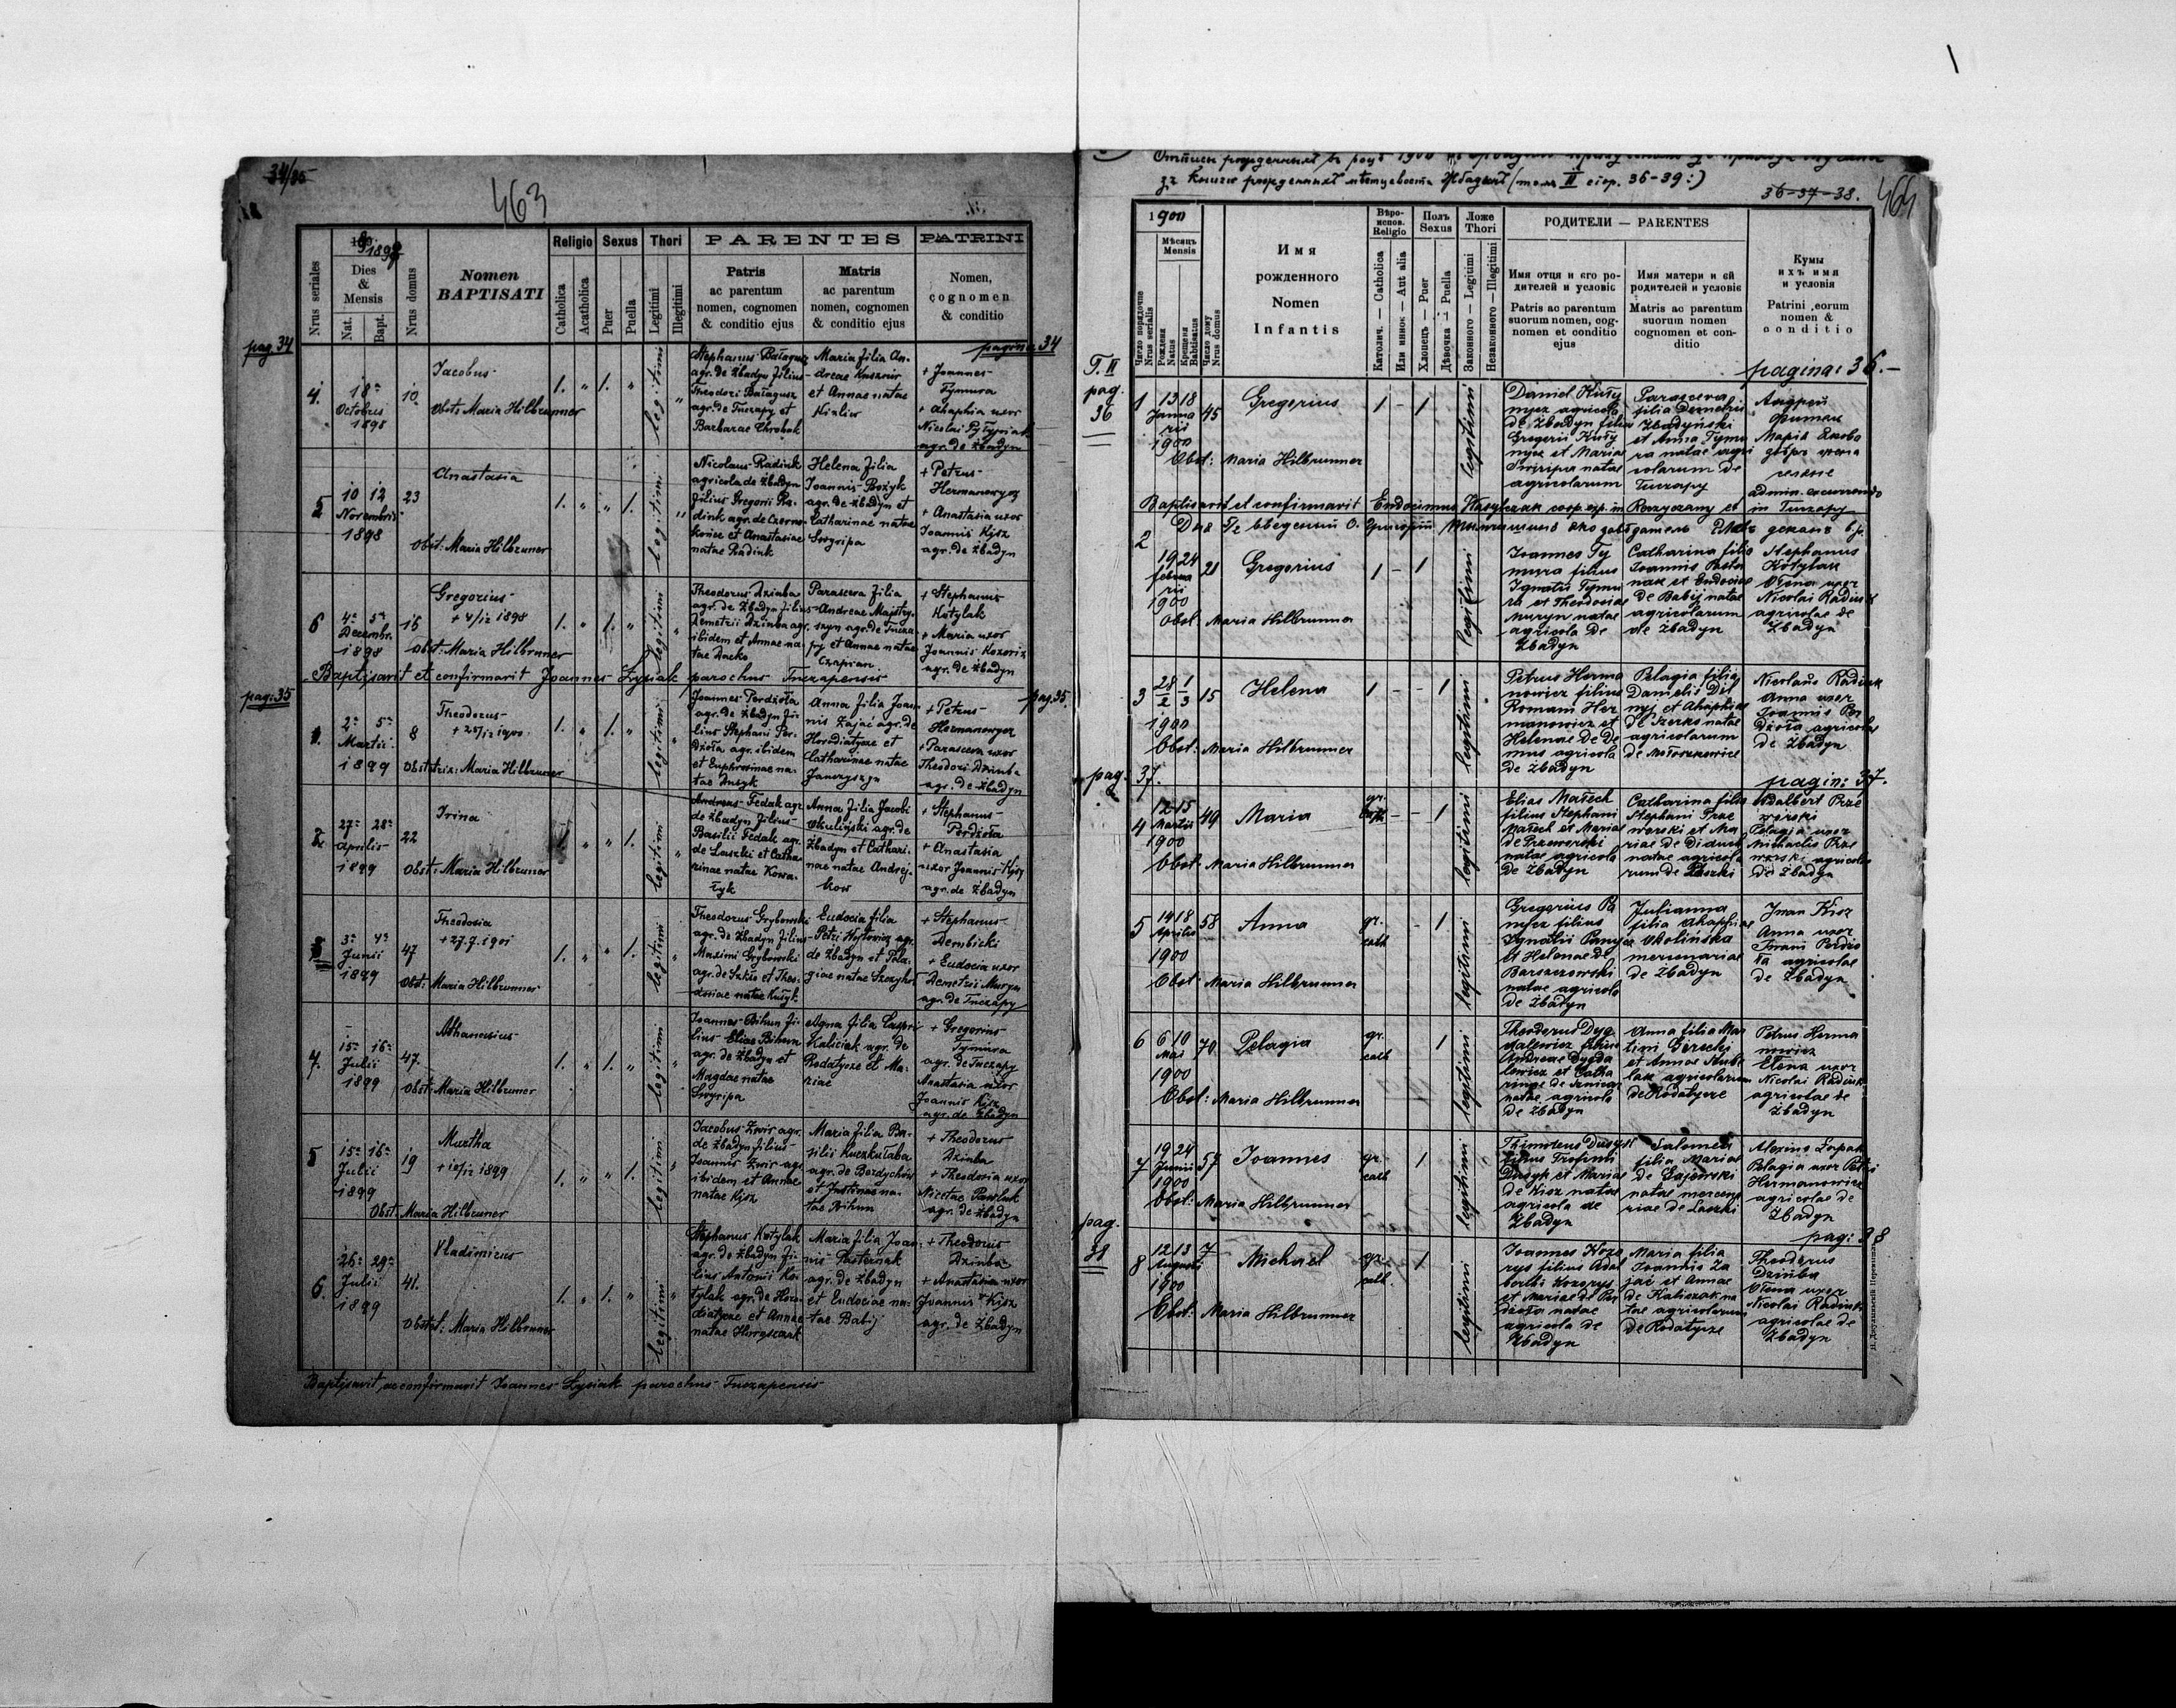 34/35
463
1898
1899
Nrus seriales
Dies & Mensis
Nat.
Bapt.
Nrus domus
Nomen
BAPTISATI
Religio
Catholica
Acatholica
Sexus
Puer
Puella
Thori
Legitimi
Illegitimi
PARENTES
Patris
ac parentum
nomen, cognomen
& conditio ejus
Matris
ac parentum
nomen, cognomen
& conditio ejus
PATRINI
Nomen,
cognomen
& conditio
pag. 34
pagina 34
4.
18a
Octobris
1898
10
Jacobus
Obst: Maria Hilbrunner
1. " 1. "
legitimi "
Stephanus Bałagusz
agr. de Żbadyn filius
Theodori Bałagusz
agr. de Tuczapy et
Barbarae Chrobak
Maria filia An-
dreae
et Annae natae
+ Joannes
Tymura
+ Ahaphia uxor
Nicolai
agr. de Żbadyn
5
10 12
Novembris
1898
23
Anastasia
Obst: Maria Hilbruner
1. " " 1.
legitimi "
Nicolaus Radiuk
agricola de Żbadyn
filius Gregorii Ra-
diuk agr. de Czerno-
końce et Anastasiae
natae Radiuk
Helena filia
Joannis Bożyk
agr. de Żbadyn et
Catharinae natae
Swyripa
+ Petrus
Hermanowycz
+ Anastasia uxor
Joannis Kysz
agr. de Żbadyn
6
4a 5a
Decembr.
1898
15
Gregorius
+ 4/12 1898
Obst: Maria Hilbruner
1. " 1. "
legitimi "
Theodorus Dzinba
agr. de Żbadyn filius
Demetrii Dzinba agr.
ibidem et Annae na-
tae Dacko
Parasceva filia
Andreae Majstry-
szyn agr. de Tucza-
py et Annae natae
Czaprian
+ Stephanus
Kotylak
+ Maria uxor
Joannis
agr. de Żbadyn
Baptisavit et confirmavit Joannes Łysiak parochus Tuczapensis
pag: 35
pag. 35.
1.
2a 5a
Martii
1899
8
Theodorus
Obstetrix: Maria Hilbruner
1. " 1. "
legitimi
Joannes Perdzoła
agr. de Żbadyn fi-
lius Stephani Per-
dzoła agr. ibidem
et Euphrosinae na-
tae Dusyk
Anna filia Joan-
nis Zając agr. de
Horodiatycze et
Catharinae natae
Janczyszyn
+ Petrus
Hermanowycz
+ Parasceva uxor
Theodori Dzinba
agr. de Żbadyn
2
27a 28a
Aprilis
1899
22
Irina
Obst: Maria Hilbruner
1. " " 1.
legitimi "
Andreas Fedak agr.
de Żbadyn filius
Basilii Fedak agr.
de Laszki et Catha-
rinae natae Kowa-
łyk
Anna filia Jacobi
Okuliński agr. de
Żbadyn et Cathari-
nae natae Andrej-
kow
+ Stephanus
Perdzoła
+ Anastasia
uxor Joannis Kysz
agr. de Żbadyn
3
3a 4a
Junii
1899
47
Theodosia
+ 27.7.1901
Obst: Maria Hilbrunner
1. " " 1.
legitimi "
Theodorus Grybowski
agr. de Żbadyn filius
Maximi Grybowski
agr. de et Theo-
dosiae natae Kułyk
Eudocia filia
Petri Wojtowicz agr.
de Żbadyn et Pela-
giae natae
+ Stephanus
Dembicki
+ Eudocia uxor
Demetrii Muryn
agr. de Tuczapy
4.
15a 16a
Julii
1899
47.
Athanasius
Obst: Maria Hilbruner
1. " 1. "
legitimi "
Joannes Bihun fi-
lius Eliae Bihun
agr. de Żbadyn et
Magdae natae
Swyripa
Agna filia Caspri
Kaliciak agr. de
Rodatycze et Ma-
riae
+ Gregorius
Tymura
agr. de Tuczapy
Anastasia uxor
Joannis Kisz
agr. de Żbadyn
5
15a 16a
Julii
1899
19
Martha
+ 10/12 1899
Obst. Maria Hilbruner
1. " " 1.
legitimi "
Jacobus Zwir agr.
de Żbadyn filius
Joannis Zwir agr.
ibidem et Annae
natae Kysz
Maria filia Ba-
silii Kuczkułaba
agr. de Bordychów
et Justinae na-
tae Bihun
+ Theodorus
Dzinba
+ Theodoria uxor
Nicetae Pawluk
agr. de Żbadyn
6.
26a 29a
Julii
1899
41.
Vladimirus
Obstet: Maria Hilbruner
1. " 1. "
legitimi
Stephanus Kotylak
agr. de Żbadyn fi-
lius Antonii Ko-
tylak agr. de Horo-
diatycze et Annae
natae Hawryszczak
Maria filia Joan-
nis Pasternak
agr. de Żbadyn
et Eudociae na-
tae Babij
+ Theodorus
Dzinba
+ Anastasia uxor
Joannis Kisz
agr. de Żbadyn
Baptisavit ac confirmavit Joannes Łysiak parochus Tuczapensis
(томъ II стор. 36-39:)
36-37-38.
464
1900
Число порядочне
Nrus serialis
Мѣсяць
Mensis
Рождення
Natus
Крещення
Babtisatus
Число дому
Nrus domus
Имя
рожденного
Nomen
Infantis
Вѣро-
испов.
Religio
Католич. — Catholica
Или иннок — Aut alia
Полъ
Sexus
Хлопець — Puer
Дѣвочка — Puella
Ложе
Thori
Законного — Legitimi
Незаконного — Illegitimi
РОДИТЕЛИ — PARENTES
Имя отця и єго ро-
дителей и условіє
Patris ac parentum
suorum nomen, cog-
nomen et conditio
ejus
Имя матери и єй
родителей и условіє
Matris ac parentum
suorum nomen
cognomen et con-
ditio
Кумы
ихъ имя
и условія
Patrini, eorum
nomen &
conditio
T. II
pag.
36
pagina: 36.
1
13 18
Januarii
1900
45
Gregorius
1 - 1
legitimi
Obst: Maria Hilbrunner
Daniel Kuły
nycz agricola
de Żbadyn filius
Gregorii Kuły
nycz et Maria
Swiripa natae
agricolarum
Parasceva
filia Demetrii
Żbadyński
et Anna Tymu
ra natae agri
colarum de
Tuczapy
Андрей
Марія
Baptisavit et confirmavit Eudocimus Wasylczak coop. exp. in et admin. excurrendo in Tuczapy
2
19 24
Februarii
1900
21
Gregorius
1 - 1
legitimi
Obst: Maria Hilbrunner
Joannes Ty
mura filius
Ignatii Tymu
ra et Theodosiae
Muryn natae
agricola de
Żbadyn
Catharina filia
Joannis Paster
nak et Eudociae
de Babij natae
agricolarum
de Żbadyn
Stephanus
Kotylak
Ołena uxor
Nicolai Radiuk
agricolae de
Żbadyn
3
28/2 1/3
1900
15
Helena
1 - - 1
legitimi
Obst: Maria Hilbrunner
Petrus Herma
nowicz filius
Romani Her
manowicz et
Helenae de De
mus agricola
de Żbadyn
Pelagia filia
Danielis Dil
nyj et Ahaphiae
de Szerko natae
agricolarum
de Małoszkowice
Nicolaus Radiuk
Anna uxor
Joannis Per
dzoła agricolae
de Żbadyn
pag. 37.
pagin: 37.
4
12 15
Martii
1900
49
Maria
gr.
cath. - - 1
legitimi
Obst: Maria Hilbrunner
Elias Małech
filius Stephani
Małech et Mariae
de Przewerski
natae agricola
de Żbadyn
Catharina filia
Stephani Prze
werski et Ma
riae de
natae agricola
rum de Laszki
Adalbert Prze
werski
Pelagia uxor
Michaelis Prze
werski agricolae
de Żbadyn
5
14 18
Aprilis
1900
58
Anna
gr.
cath - 1
legitimi
Obst: Maria Hilbrunner
Gregorius Pa
nycz filius
Ignatii Panycz
et Helenae de
Barszczowski
natae agricola
de Żbadyn
Julianna
filia Ahaphiae
Okolińska
mercenariae
de Żbadyn
Iwan Kisz
Anna uxor
Iwani Perdzo
ła agricolae
de Żbadyn
6
6 10
Mai
1900
70
Pelagia
gr.
cath 1
legitimi
Obst: Maria Hilbrunner
Theodorus Dyg
dalewicz filius
Andreae Dygda
lewicz et Catha
rinae de
natae agricola
de Żbadyn
Anna filia Mar
tini Gerecki
et Annae
agricolarum
de Rodatycze
Petrus Herma
nowicz
Ełena uxor
Nicolai Radiuk
agricolae de
Żbadyn
7
19 24
Junii
1900
57
Joannes
gr.
cath 1
legitimi
Obst: Maria Hilbrunner
Thimoteus Dusyk
filius Trofimi
Dusyk et Mariae
de Kisz natae
agricola de
Żbadyn
Salomea
filia Mariae
de Gajewski
natae mercena
riae de Laszki
Alexius Łopak
Pelagia uxor Petri
Hermanowicz
agricolae de
Żbadyn
pag.
38
pag: 38
8
12 13
Augusti
1900
7
Michael
gr.
cath. 1
legitimi
Obst: Maria Hilbrunner
Joannes Koze
rys filius Adal
berthi Kozerys
et Mariae de Per
dzoła natae
agricola de
Żbadyn
Maria filia
Joannis Za
jac et Annae
de Kaliczak na
tae agricolarum
de Rodatycze
Theodorus
Dzinba
Ołena uxor
Nicolai Radiuk
agricolae de
Żbadyn